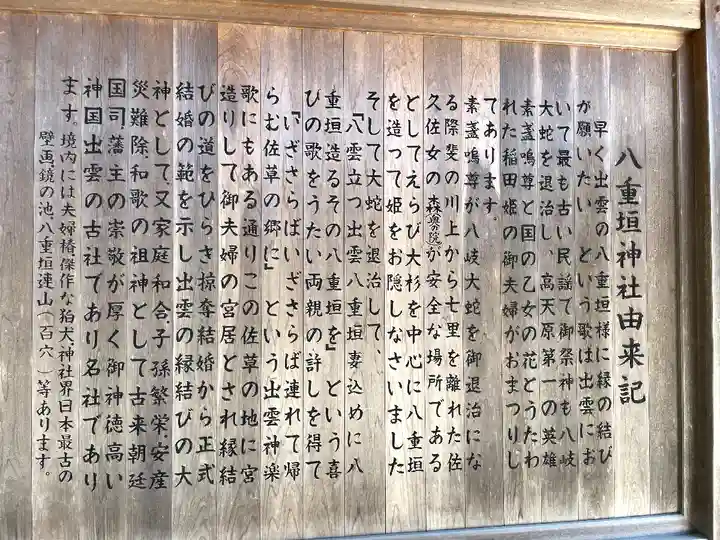 八重垣神社由来記
早く出雲の八重垣様に縁の結び
が願いたい という歌は出雲にお
いて最も古い民謡で御祭神も八岐
大蛇を退治し、高天原第一の英雄
素盞嗚尊と国の乙女の花とうたわ
れた稲田姫の御夫婦がおまつりし
てあります。
素盞嗚尊が八岐大蛇を御退治にな
る際斐の川上から七里を離れた佐
久佐女の森(奥の院)が安全な場所である
としてえらび大杉を中心に八重垣
を造って姫をお隠しなさいました
そして大蛇を退治して、
『八雲立つ出雲八重垣妻込めに八
重垣造るその八重垣を』という喜
びの歌をうたい両親の許しを得て
『いざさらばいざさらば連れて帰
らむ佐草の郷に』という出雲神楽
歌にもある通りこの佐草の地に宮
造りして御夫婦の宮居とされ縁結
びの道をひらき掠奪結婚から正式
結婚の範を示し出雲の縁結びの大
神として又家庭和合、子孫繁栄、安産
災難除、和歌の祖神として古来朝廷
国司藩主の崇敬が厚く御神徳高い
神国出雲の古社であり名社であり
ます。境内には夫婦椿、傑作な狛犬、神社界日本最古の
壁画、鏡の池、八重垣連山(百穴)等あります。